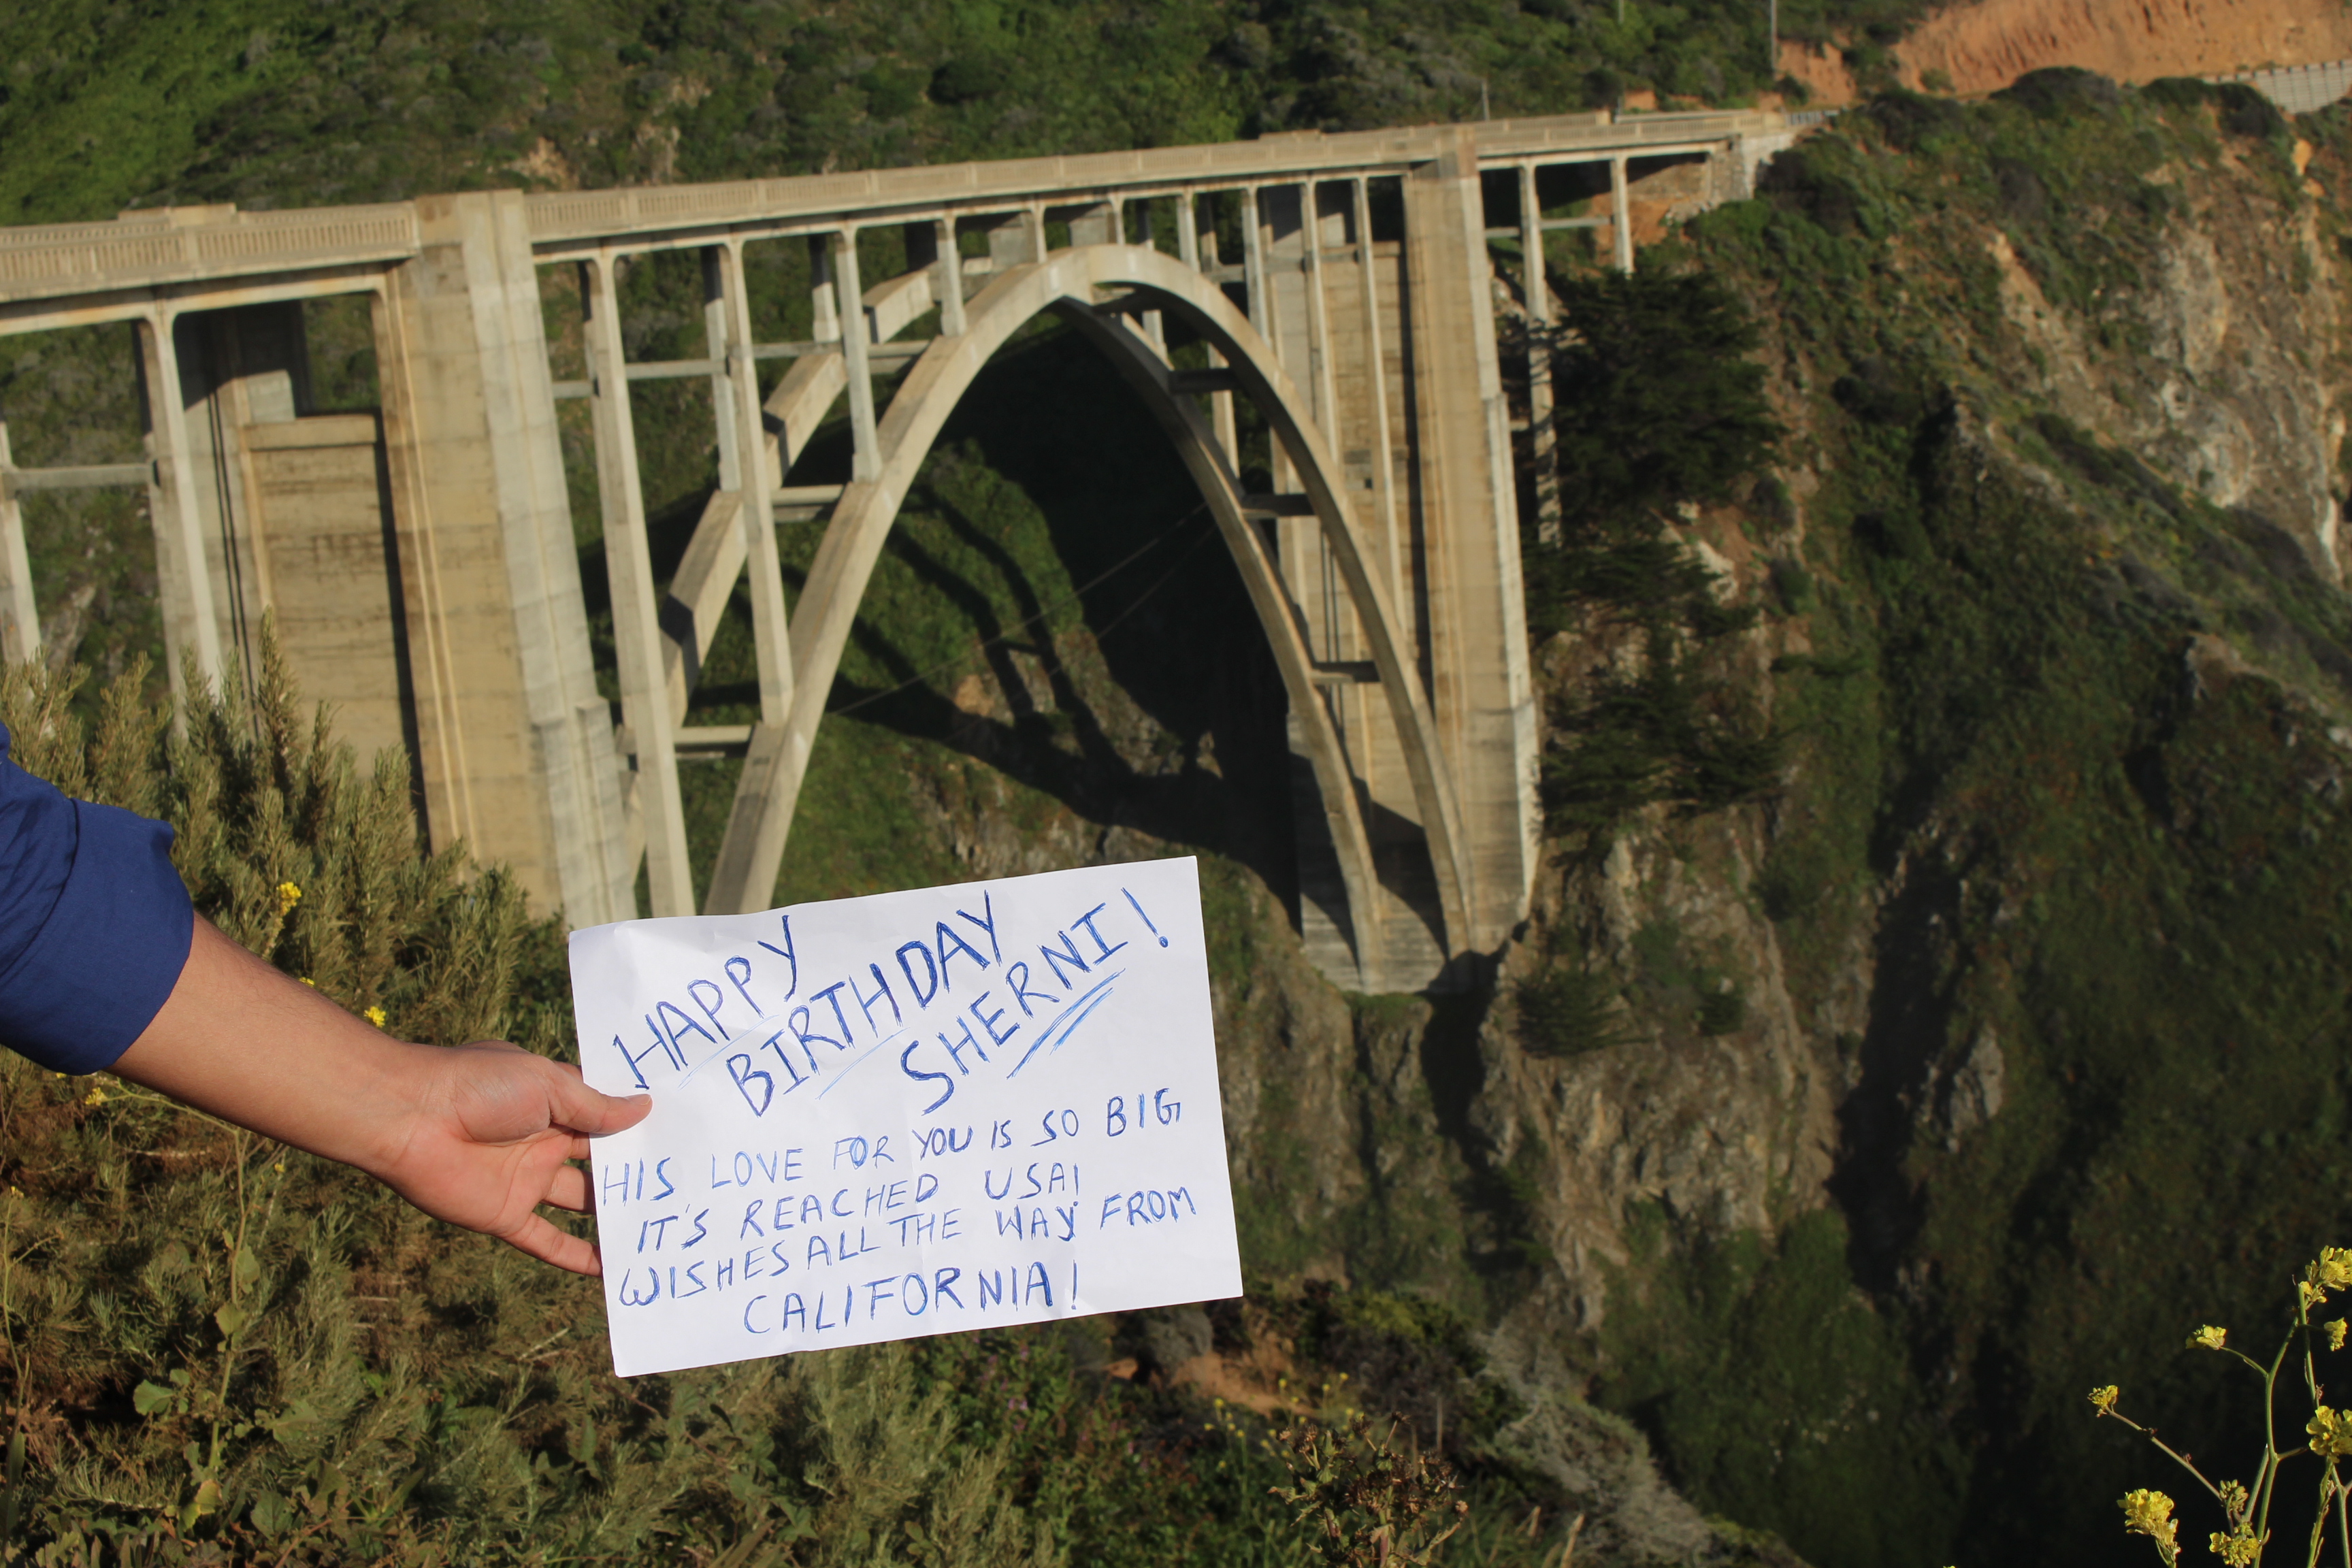 HAPPY
BIRTHDAY
SHERNI!
HIS LOVE FOR YOU IS SO BIG
IT'S REACHED USA!
WISHES ALL THE WAY FROM
CALIFORNIA!